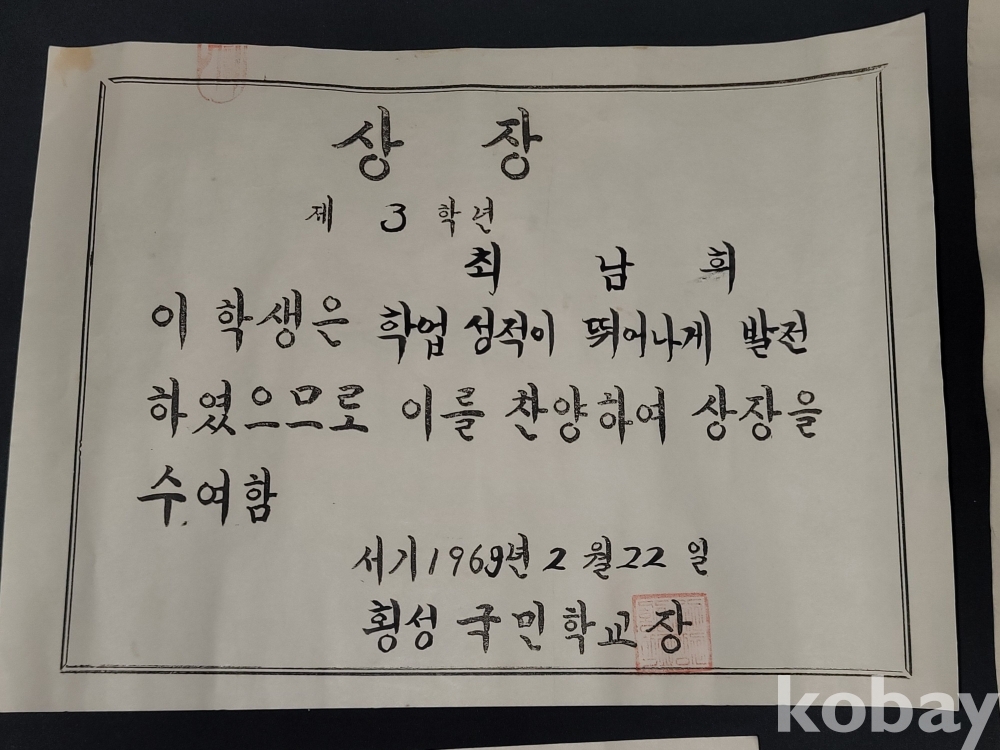 상 장
제 3 학년
최 남 희
이 학생은 학업 성적이 뛰어나게 발전
하였으므로 이를 찬양하여 상장을
수여함
서기 1969년 2 월 22 일
횡성 국민학교장
kobay